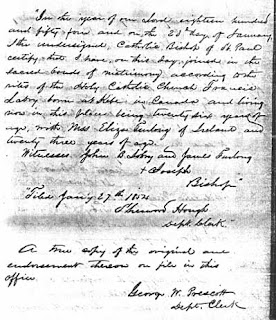 "In the year of our Lord eighteen hundred
and fifty four and on the 23d day of January
I the undersigned, Catholic Bishop of St Paul
certify, that I have, on this day, joined in the
sacred bonds of matrimony according to the
rites of the Holy Catholic Church Francis
born at in Canada and living
now in this place being twenty six years of
age, with Miss Eliza Furlong of Ireland and
twenty three years of age.
Witnesses John B. and James Furlong
+ Joseph
Bishop"
"Filed Jan'y 27th 1854
Sherwood Hough
Dept. Clerk"
A true copy of the original and
endorsement thereon on file in this
office
George W. Prescott
Dept. Clerk